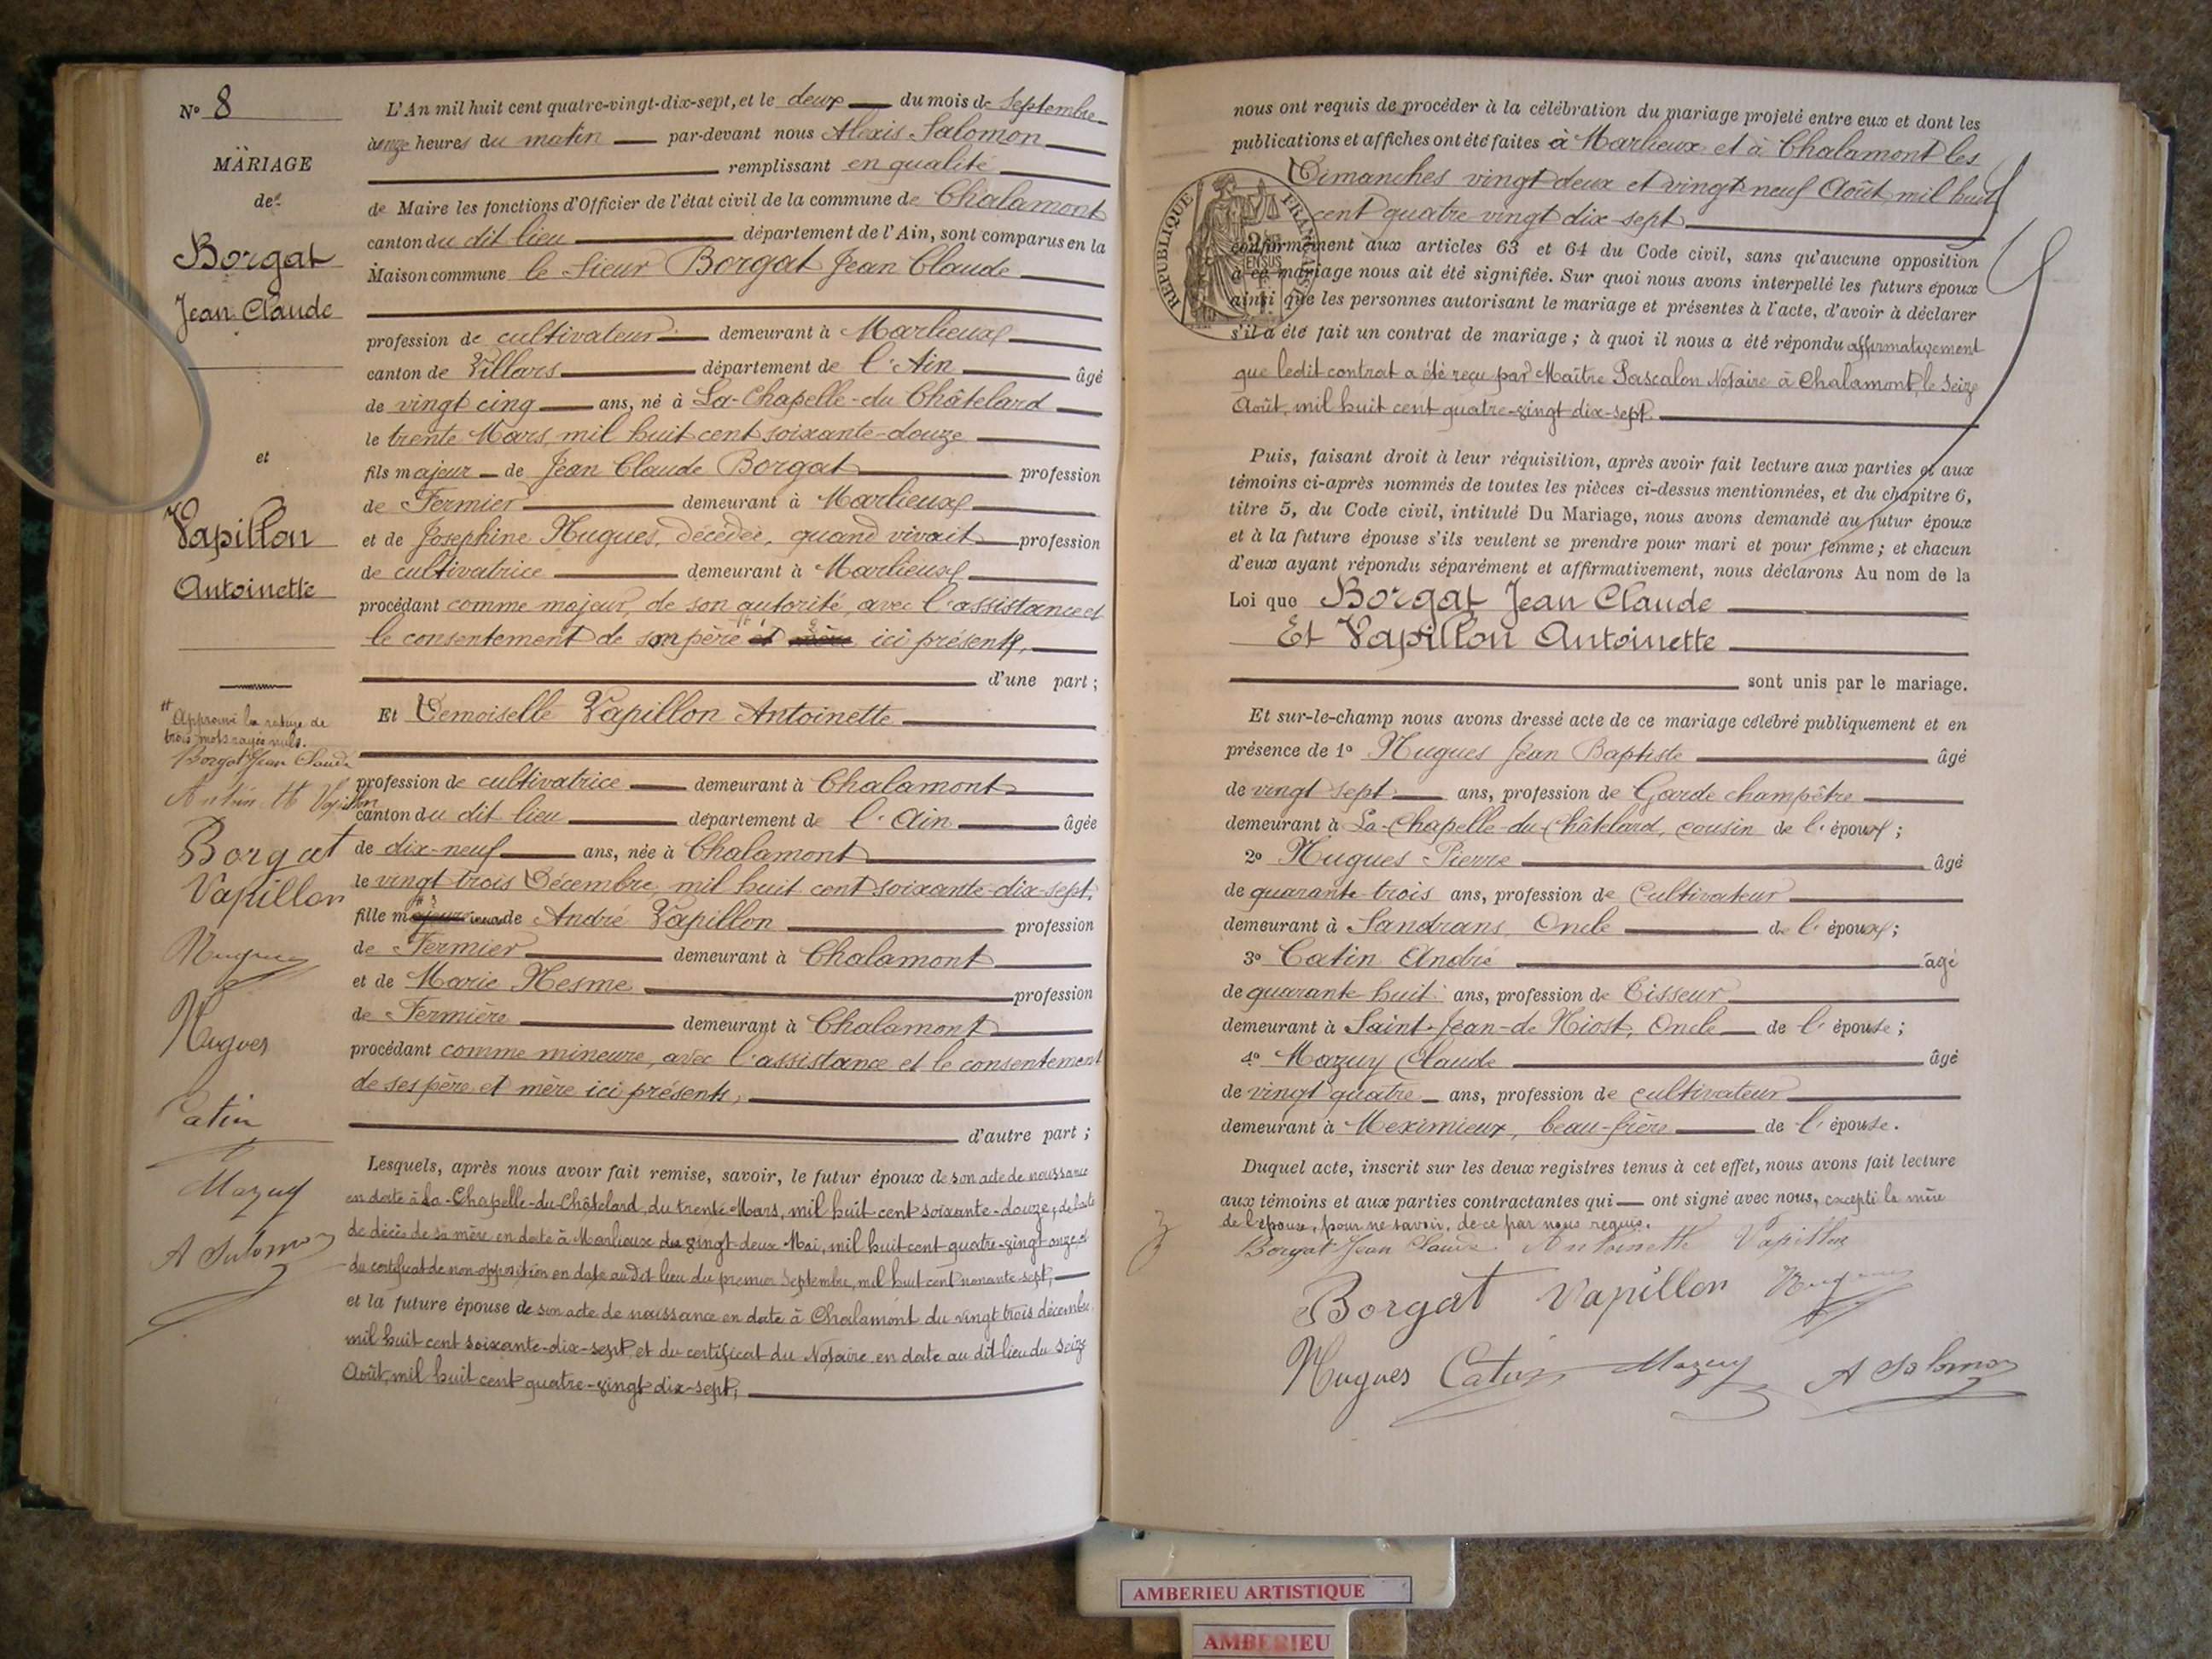 N° 8
MARIAGE
de
Borgat
Jean Claude
et
Vapillon
Antoinette
Approuvé la rature de
trois mots rayés nuls.
Borgat Jean Claude
Antoinette Vapillon
Borgat
Vapillon
Hugues
Hugues
Catin
Mazuy
A Salomon
L'An mil huit cent quatre-vingt-dix-sept, et le deux du mois de Septembre
à onze heures du matin par-devant nous Alexis Salomon
remplissant en qualité
de Maire les fonctions d'Officier de l'état civil de la commune de Chalamont
canton du dit lieu département de l'Ain, sont comparus en la
Maison commune le Sieur Borgat Jean Claude
profession de cultivateur demeurant à Marlieux
canton de Villars département de l'Ain âgé
de vingt cinq ans, né à La-Chapelle-du Châtelard
le trente Mars, mil huit cent soixante-douze
fils majeur de Jean Claude Borgat profession
de Fermier demeurant à Marlieux
et de Josephine Hugues, décédée, quand vivait profession
de cultivatrice demeurant à Marlieux
procédant comme majeur, de son autorité, avec l'assistance et
le consentement de son père et mère ici présent,
d'une part;
Et Demoiselle Vapillon Antoinette
profession de cultivatrice demeurant à Chalamont
canton du dit lieu département de l'Ain âgée
de dix-neuf ans, née à Chalamont
le vingt trois Décembre, mil huit cent soixante-dix-sept,
fille majeure ineure de André Vapillon profession
de Fermier demeurant à Chalamont
et de Marie Hesme profession
de Fermière demeurant à Chalamont
procédant comme mineure, avec l'assistance et le consentement
de ses père et mère ici présents,
d'autre part;
Lesquels, après nous avoir fait remise, savoir, le futur époux de son acte de naissance
en date à La-Chapelle-du-Châtelard, du trente Mars, mil huit cent soixante-douze, de l'acte
de décès de sa mère en date à Marlieux du vingt-deux Mai, mil huit cent quatre-vingt onze, et
du certificat de non-opposition en date au dit lieu du premier Septembre, mil huit cent nonante-sept,
et la future épouse de son acte de naissance en date à Chalamont du vingt trois décembre,
mil huit cent soixante-dix-sept, et du certificat du Notaire, en date au dit lieu du seize
Août, mil huit cent quatre-vingt dix-sept,
nous ont requis de procéder à la célébration du mariage projeté entre eux et dont les
publications et affiches ont été faites à Marlieux et à Chalamont les
Dimanches vingt deux et vingt neuf Août, mil huit
cent quatre vingt dix-sept
RÉPUBLIQUE FRANÇAISE
conformément aux articles 63 et 64 du Code civil, sans qu'aucune opposition
à ce mariage nous ait été signifiée. Sur quoi nous avons interpellé les futurs époux
ainsi que les personnes autorisant le mariage et présentes à l'acte, d'avoir à déclarer
s'il a été fait un contrat de mariage; à quoi il nous a été répondu affirmativement
que ledit contrat a été reçu par Maître Pascalon Notaire à Chalamont, le seize
Août, mil huit cent quatre-vingt dix-sept.
Puis, faisant droit à leur réquisition, après avoir fait lecture aux parties et aux
témoins ci-après nommés de toutes les pièces ci-dessus mentionnées, et du chapitre 6,
titre 5, du Code civil, intitulé Du Mariage, nous avons demandé au futur époux
et à la future épouse s'ils veulent se prendre pour mari et pour femme; et chacun
d'eux ayant répondu séparément et affirmativement, nous déclarons Au nom de la
Loi que Borgat Jean Claude
Et Vapillon Antoinette
sont unis par le mariage.
Et sur-le-champ nous avons dressé acte de ce mariage célébré publiquement et en
présence de 1° Hugues Jean Baptiste âgé
de vingt sept ans, profession de Garde champêtre
demeurant à La-Chapelle-du-Châtelard, cousin de l'époux;
2° Hugues Pierre âgé
de quarante-trois ans, profession de Cultivateur
demeurant à Sandrans Oncle de l'époux;
3° Catin André âgé
de quarante-huit ans, profession de Tisseur
demeurant à Saint-Jean-de Niost, Oncle de l'épouse;
4° Mazuy Claude âgé
de vingt quatre ans, profession de cultivateur
demeurant à Meximieux, beau-frère de l'épouse.
Duquel acte, inscrit sur les deux registres tenus à cet effet, nous avons fait lecture
aux témoins et aux parties contractantes qui ont signé avec nous, excepté la mère
de l'épouse, pour ne savoir, de ce par nous requis.
Borgat Jean Claude Antoinette Vapillon
Borgat Vapillon Hugues
Hugues Catin Mazuy A Salomon
AMBERIEU ARTISTIQUE
AMBERIEU